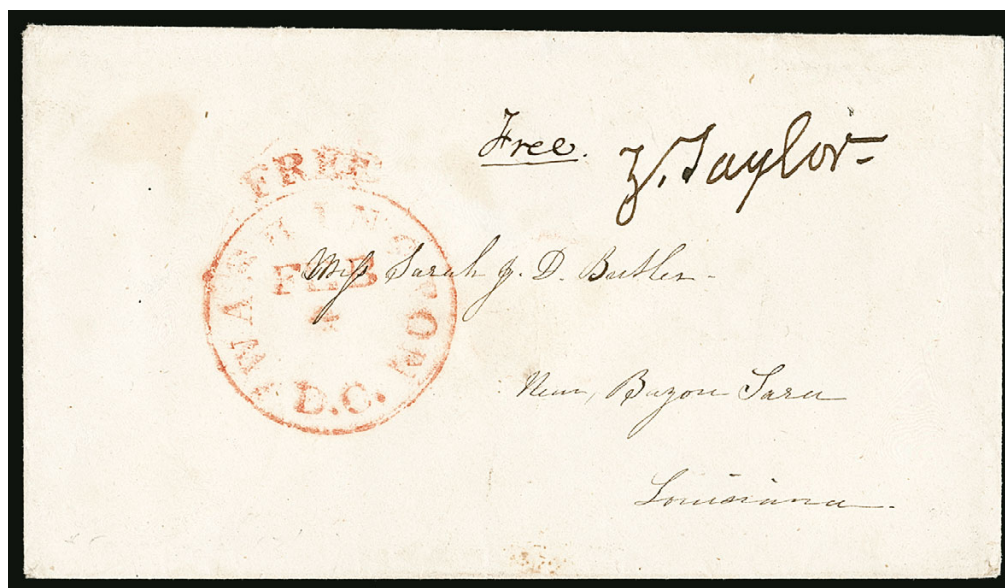 Free. Z. Taylor
FREE
WASHINGTON
D.C.
FEB
4
Miss Sarah J. D. Butler
Near, Bayou Sara
Louisiana.